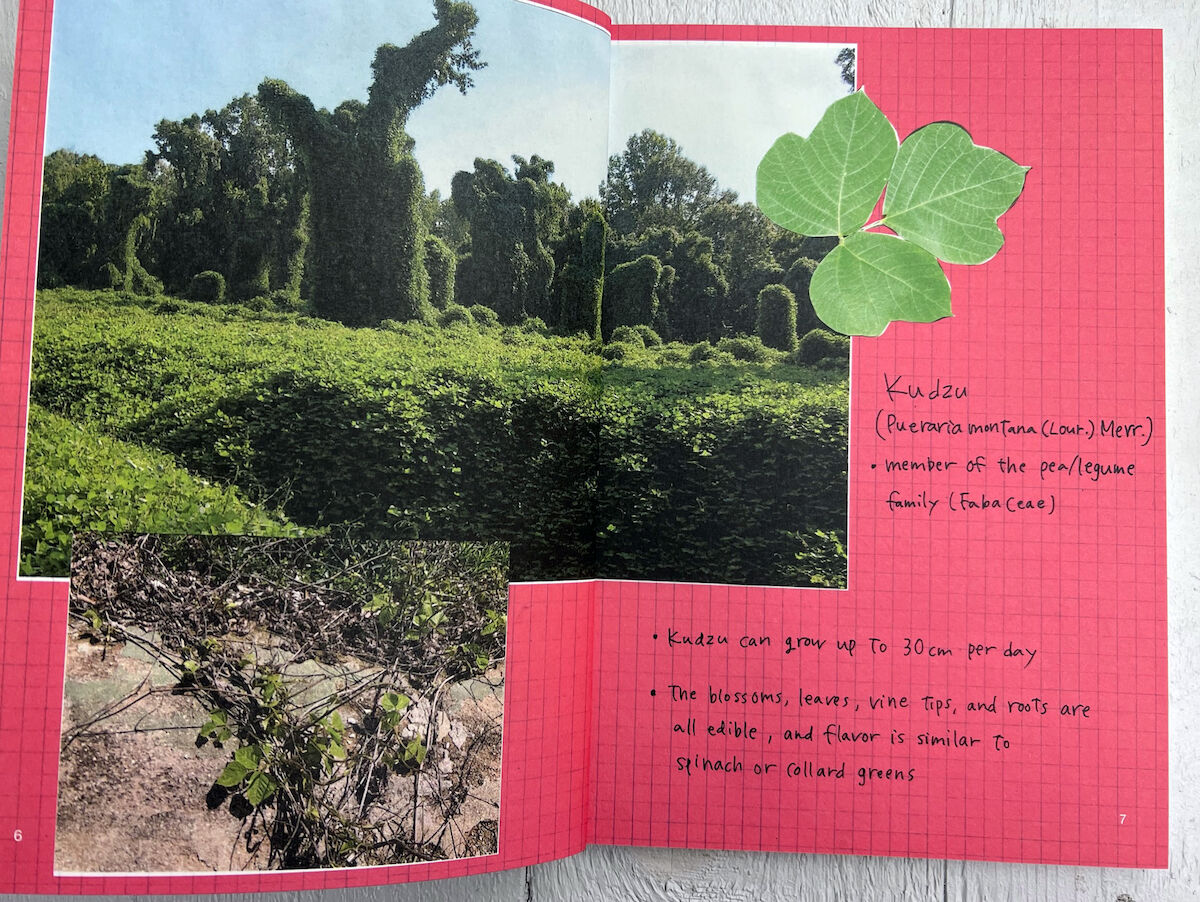 Kudzu
(Pueraria montana (Lour.) Merr.)
• member of the pea/legume
family (Fabaceae)
• Kudzu can grow up to 30cm per day
• The blossoms, leaves, vine tips, and roots are
all edible, and flavor is similar to
spinach or collard greens
6
7